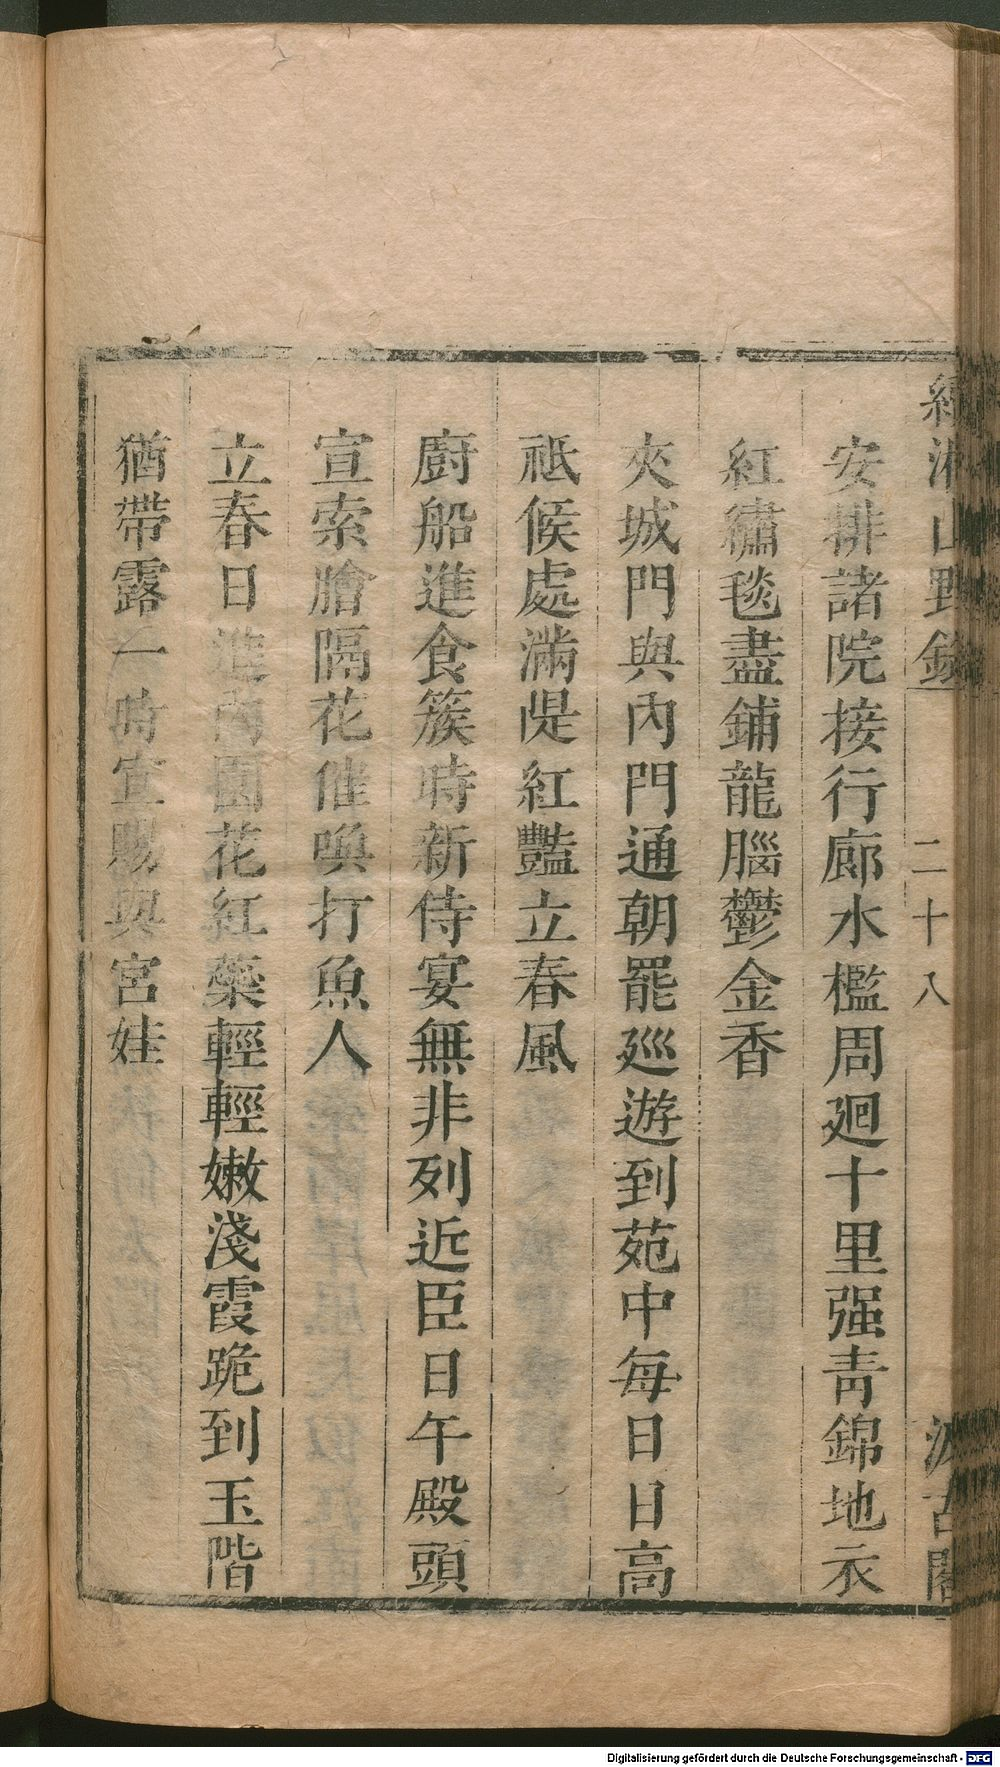 續湘山野錄 二十八 汲古閣
安排諸院接行廊水檻周廻十里强靑錦地衣
紅繡毯盡鋪龍腦鬱金香
夾城門與內門通朝罷廵遊到苑中每日日高
祗候處滿隄紅豔立春風
廚船進食簇時新侍宴無非列近臣日午殿頭
宣索膾隔花催喚打魚人
立春日進內園花紅蘂輕輕嫩淺霞跪到玉階
猶帶露一時宣賜與宮娃
Digitalisierung gefördert durch die Deutsche Forschungsgemeinschaft - DFG